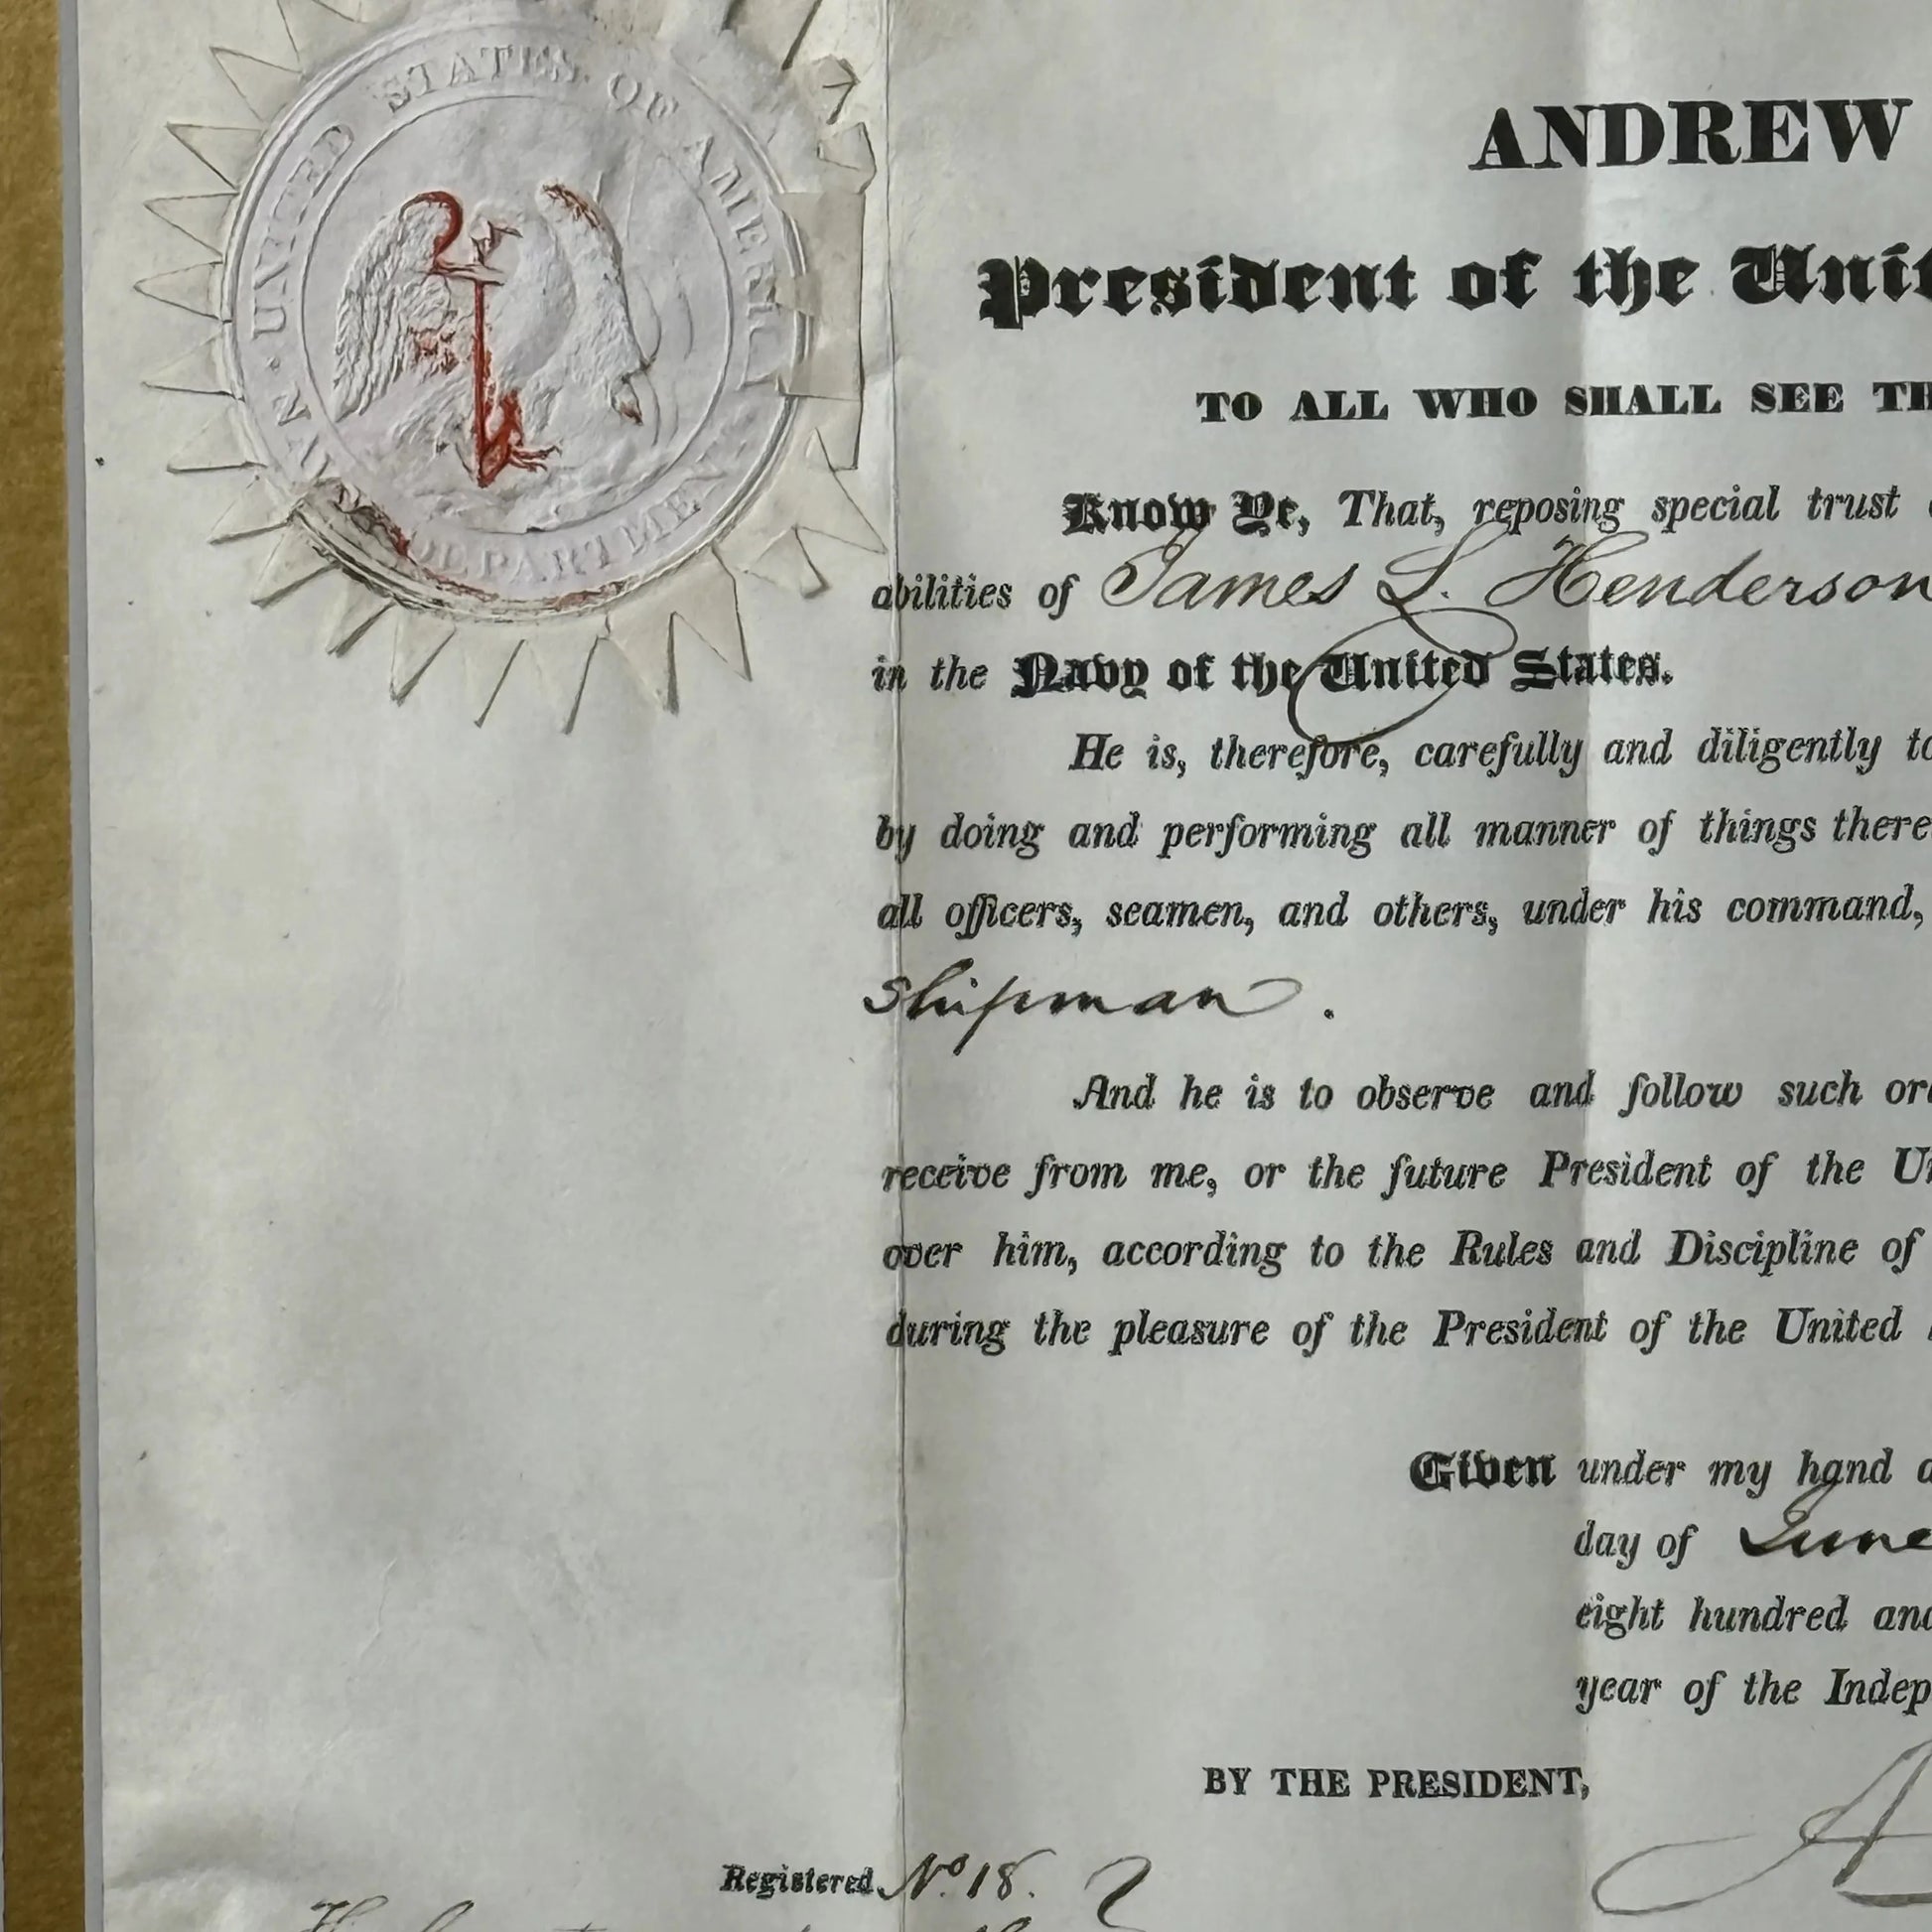 UNITED STATES OF AMERICA
NAVY DEPARTMENT
ANDREW
President of the Unit
TO ALL WHO SHALL SEE TH
Know Ye, That, reposing special trust
abilities of James L. Henderson
in the Navy of the United States.
He is, therefore, carefully and diligently to
by doing and performing all manner of things there
all officers, seamen, and others, under his command,
Shipman.
And he is to observe and follow such ord
receive from me, or the future President of the Un
over him, according to the Rules and Discipline of
during the pleasure of the President of the United
Given under my hand a
day of June
eight hundred and
year of the Indep
BY THE PRESIDENT,
A
Registered No. 18.